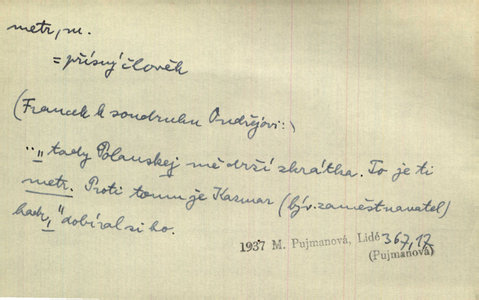 metr, m.
= přísný člověk
(Francek k soudruhu Ondřejovi:)
„tady Polanskej mě drží zkrátka. To je ti
metr. Proti tomu je Kazmar (býv. zaměstnavatel)
hadr," dobíral si ho.
1937 M. Pujmanová, Lidé 367,17
(Pujmanová)